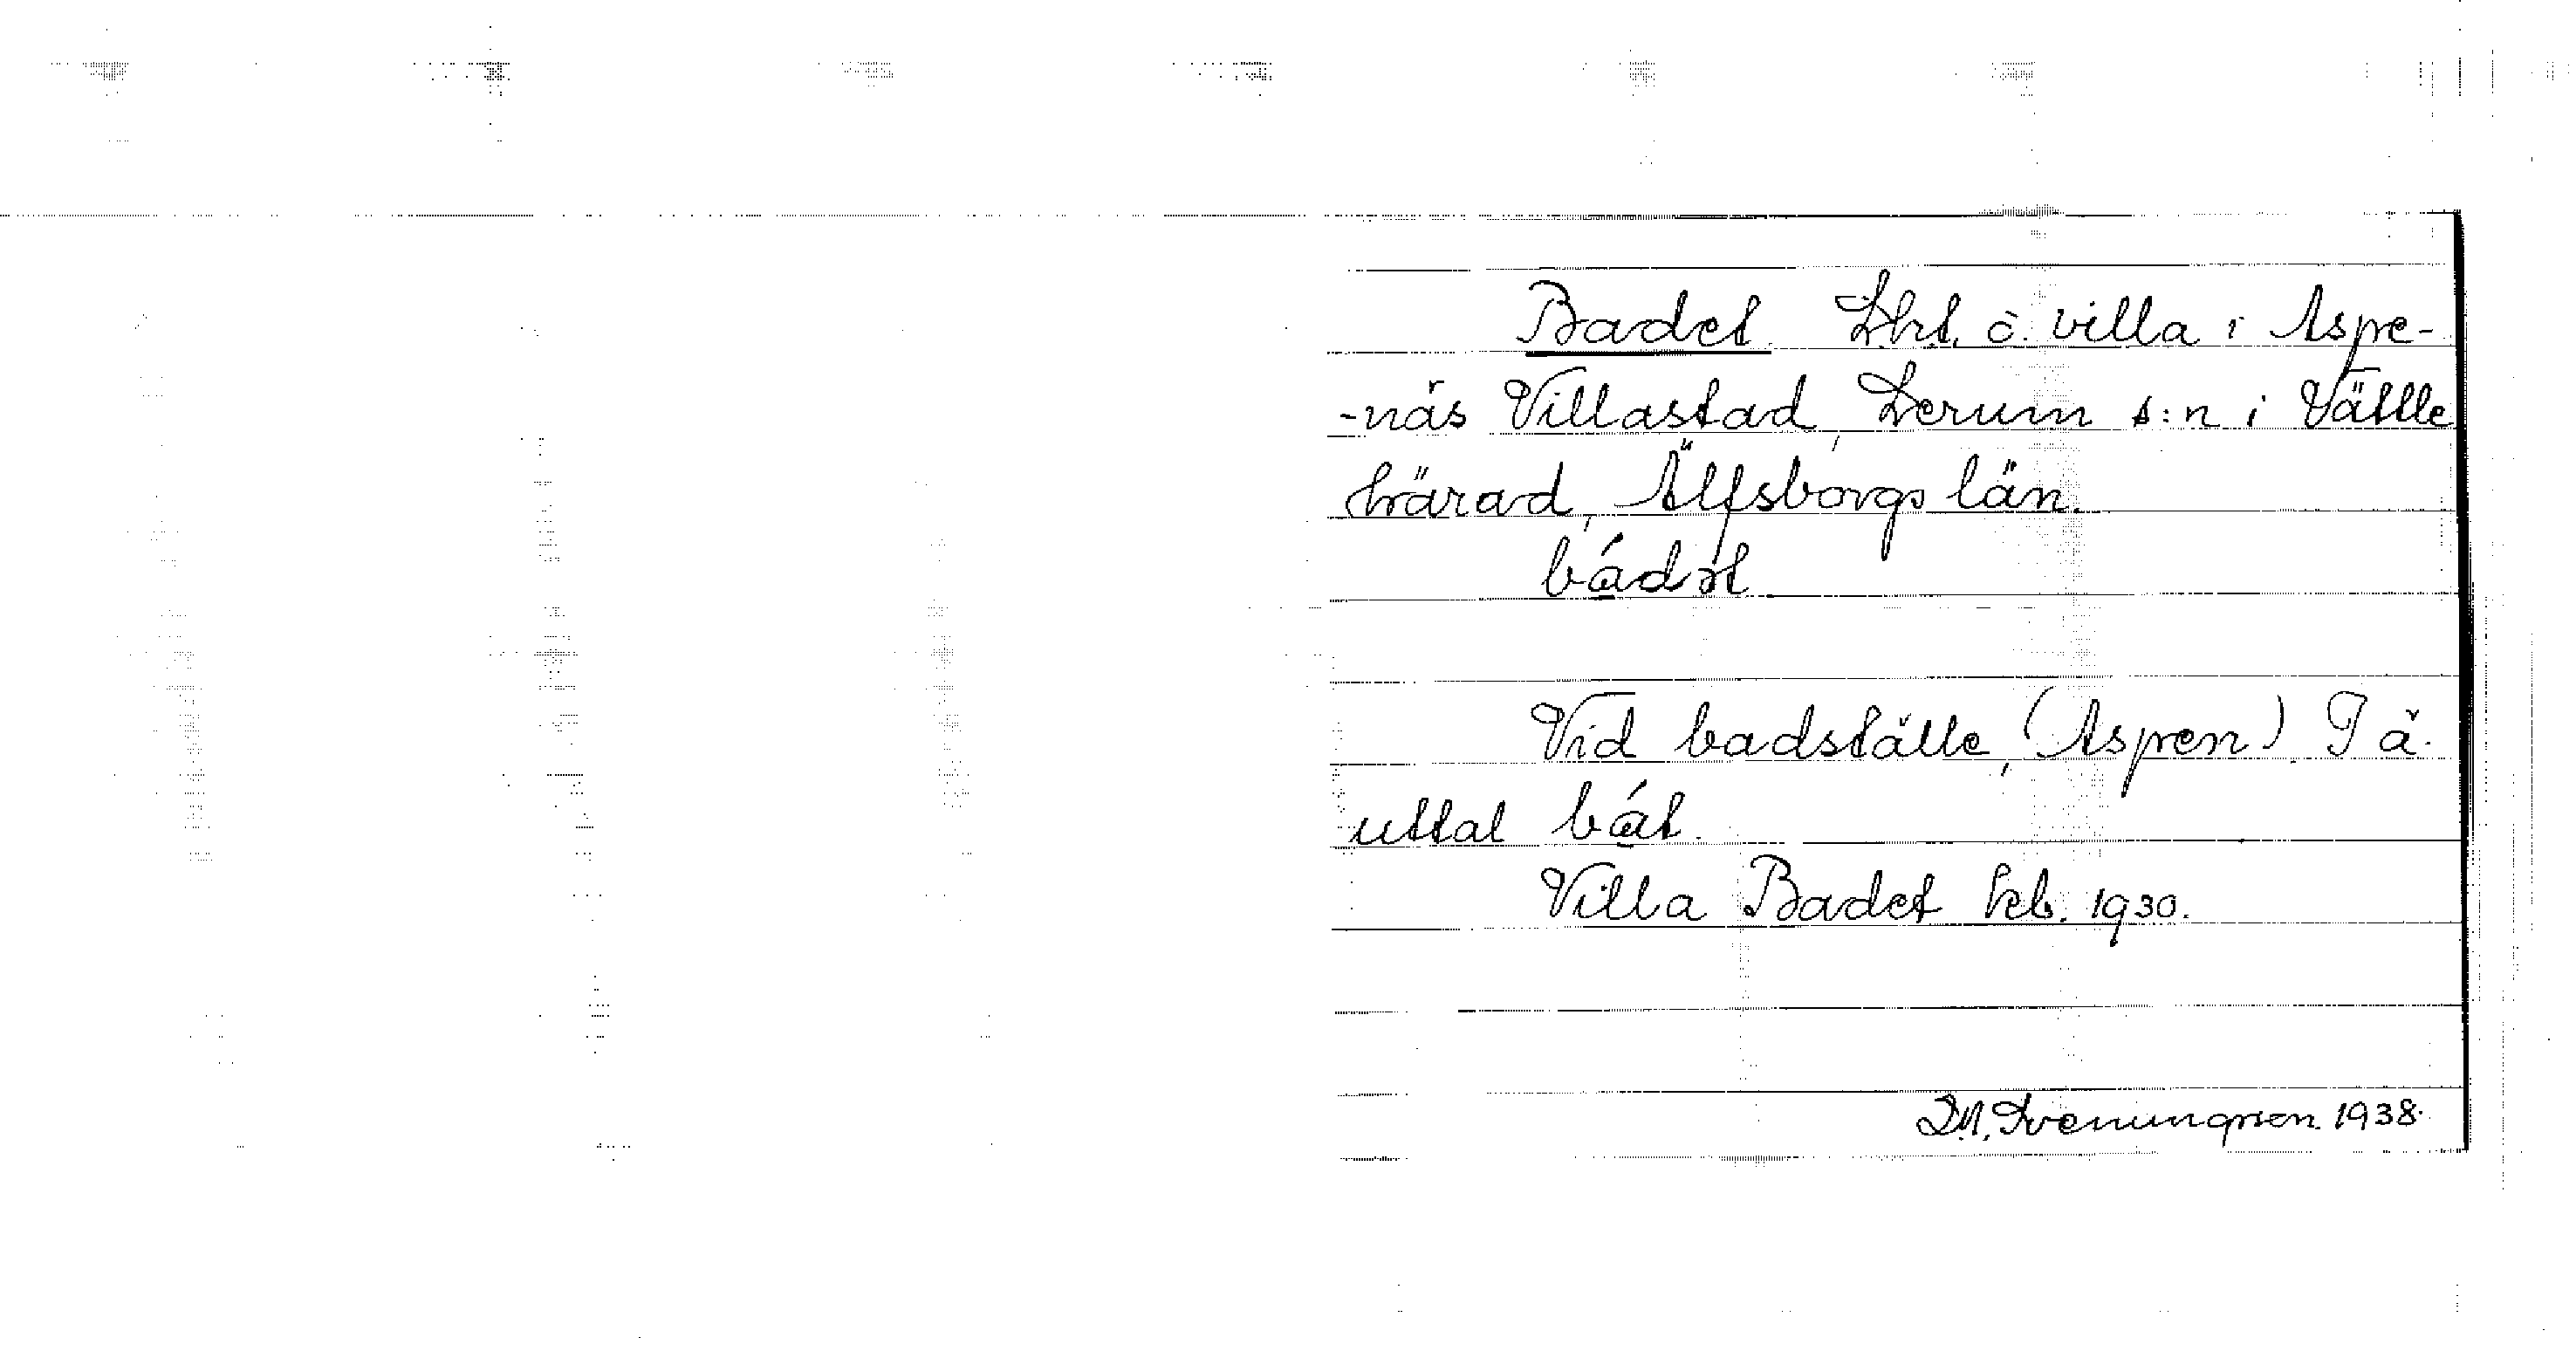 Badet. Lht. o. villa i Aspe-
-näs Villastad, Lerum s:n i Vättle
härad, Älfsborgs län.
bádət
Vid badställe, (Aspen). I ä.
uttal bát.
Villa Badet Feb. 1930.
D.A. Svenungsson 1938.